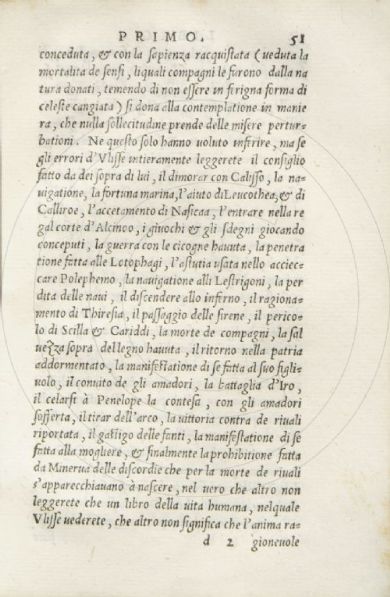 PRIMO. 51
conceduta, & con la sapienza racquistata (ueduta la
mortalita de sensi, liquali compagni le furono dalla na
tura donati, temendo di non essere in ferigna forma di
celeste cangiata) si dona alla contemplatione in manie
ra, che nulla sollecitudine prende delle misere pertur-
bationi. Ne questo solo hanno uoluto inferire, ma se
gli errori d'Vlisse intieramente leggerete il consiglio
fatto da dei sopra di lui, il dimorar con Calisso, la na-
uigatione, la fortuna marina, l'aiuto di Leucothea, & di
Calliroe, l'accetamento di Nasicaa, l'entrare nella re
gal corte d'Alcinoo, i giuochi & gli sdegni giocando
conceputi, la guerra con le cicogne hauuta, la penetra
tione fatta alle Lotophagi, l'astutia usata nello acciec-
care Polephemo, la nauigatione alli Lestrigoni, la per
dita delle naui, il discendere allo inferno, il ragiona-
mento di Thiresia, il passaggio delle sirene, il perico-
lo di Scilla & Cariddi, la morte de compagni, la sal
uezza sopra del legno hauuta, il ritorno nella patria
addormentato, la manifestatione di se fatta al suo figli-
uolo, il conuito de gli amadori, la battaglia d'Iro,
il celarsi à Penelope la contesa, con gli amadori
sofferta, il tirar dell'arco, la uittoria contra de riuali
riportata, il gastigo delle fanti, la manifestatione di se
fatta alla mogliere, & finalmente la prohibitione fatta
da Minerua delle discordie che per la morte de riuali
s'apparecchiauano à nascere, nel uero che altro non
leggerete che un libro della uita humana, nelquale
Vlisse uederete, che altro non significa che l'anima ra-
d 2 gioneuole